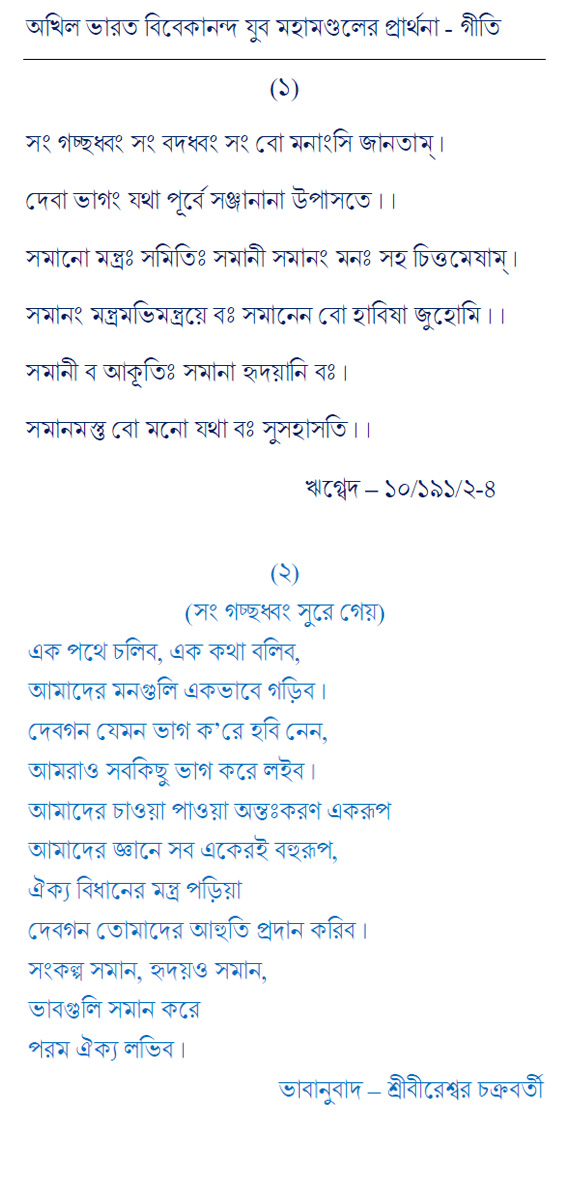 অখিল ভারত বিবেকানন্দ যুব মহামণ্ডলের প্রার্থনা - গীতি
(১)
সং গচ্ছধ্বং সং বদধ্বং সং বো মনাংসি জানতাম্।
দেবা ভাগং যথা পূর্বে সঞ্জানানা উপাসতে।।
সমানো মন্ত্রঃ সমিতিঃ সমানী সমানং মনঃ সহ চিত্তমেষাম্।
সমানং মন্ত্রমভিমন্ত্রয়ে বঃ সমানেন বো হাবিষা জুহোমি।।
সমানী ব আকূতিঃ সমানা হৃদয়ানি বঃ।
সমানমস্তু বো মনো যথা বঃ সুসহাসতি।।
ঋগ্বেদ – ১০/১৯১/২-৪
(২)
(সং গচ্ছধ্বং সুরে গেয়)
এক পথে চলিব, এক কথা বলিব,
আমাদের মনগুলি একভাবে গড়িব।
দেবগন যেমন ভাগ ক’রে হবি নেন,
আমরাও সবকিছু ভাগ করে লইব।
আমাদের চাওয়া পাওয়া অন্তঃকরণ একরূপ
আমাদের জ্ঞানে সব একেরই বহুরূপ,
ঐক্য বিধানের মন্ত্র পড়িয়া
দেবগন তোমাদের আহুতি প্রদান করিব।
সংকল্প সমান, হৃদয়ও সমান,
ভাবগুলি সমান করে
পরম ঐক্য লভিব।
ভাবানুবাদ – শ্রীবীরেশ্বর চক্রবর্তী